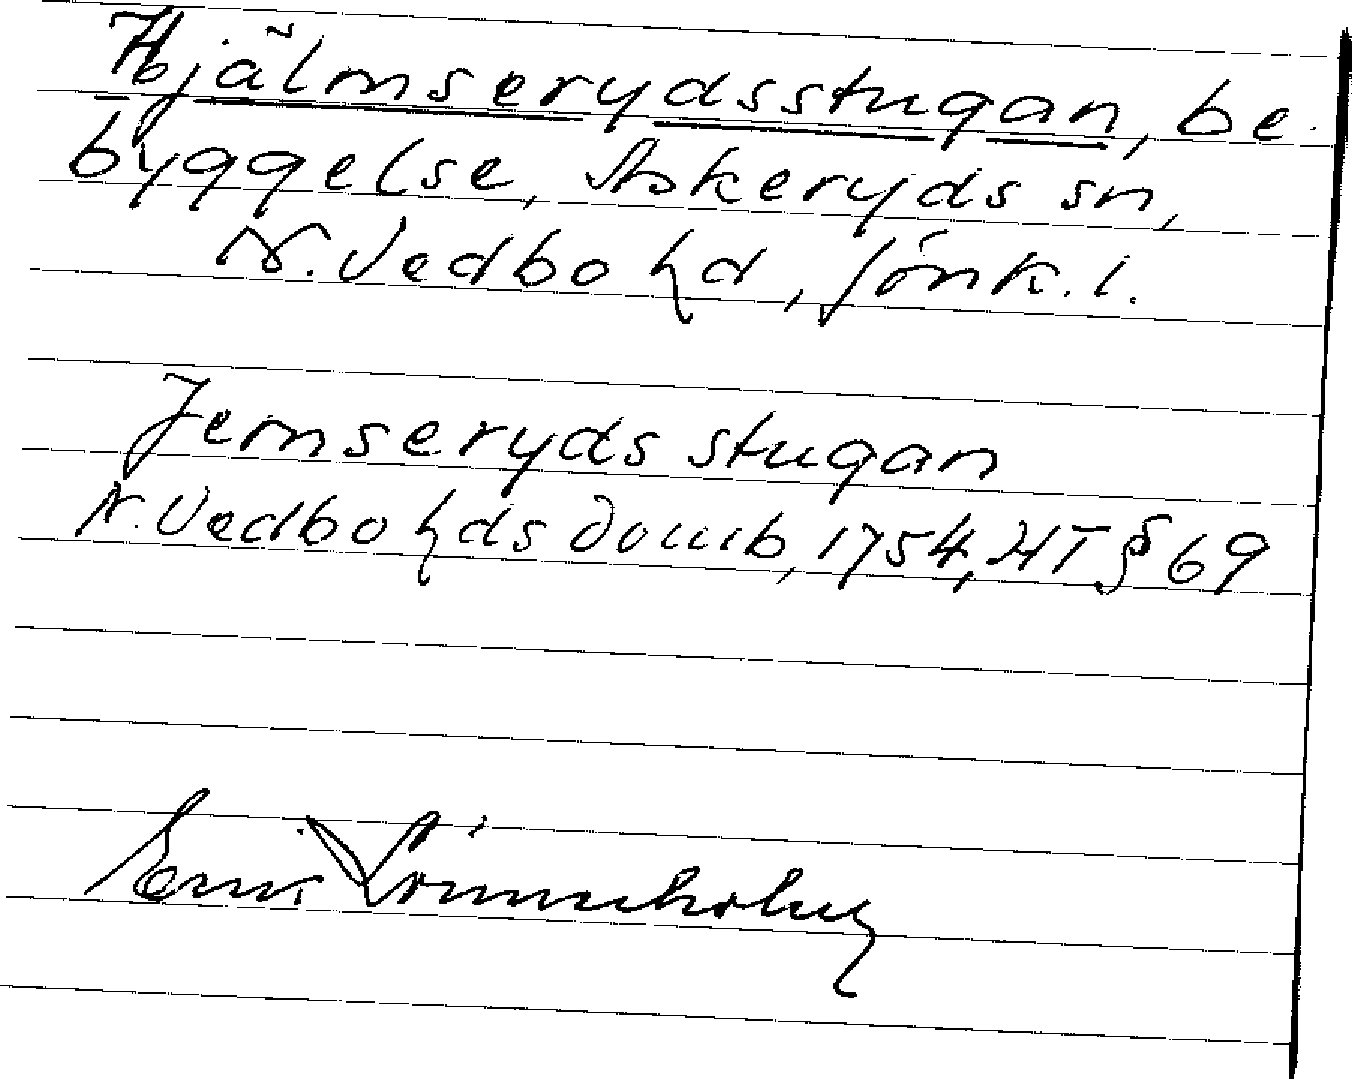 Hjälmserydsstugan, be-
byggelse, Askeryds sn,
N. Vedbo hd, Jönk. l.
Jemseryds stugan
N. Vedbo hds domb, 1754, HT § 69